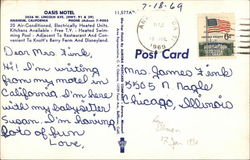 7-18-69
OASIS MOTEL
ANAHEIM, CALIFORNIA
30 Air-Conditioned, Electrically Heated Units.
Kitchens Available - Free T.V. - Heated Swim-
ming Pool - Adjacent To Restaurant And Conven-
ient To Knott's Berry Farm And Disneyland.
Post Card
1969
6c
Dear Mrs. Fink,
Hi! I'm writing
from my motel in
California. I'm here
with my babysitter
Susan. I'm having
lots of fun
Love,
Mrs. James Fink
5505 N. Nagle
Chicago, Illinois